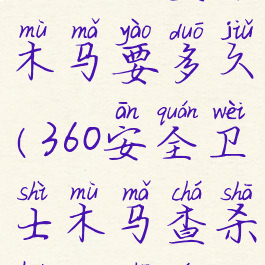 mù mǎ yào duō jiǔ
木马要多久
ān quán wèi
(360安全卫
shì mù mǎ chá shā
士木马查杀